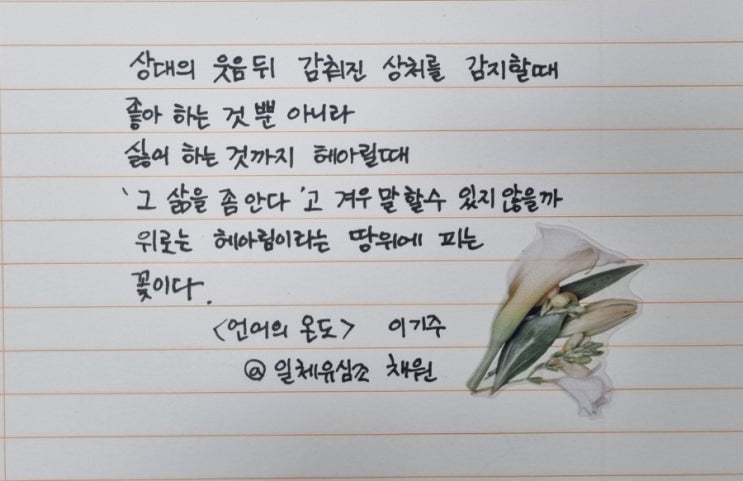 상대의 웃음 뒤 감춰진 상처를 감지할때
좋아 하는 것 뿐 아니라
싫어 하는 것까지 헤아릴때
'그 삶을 좀 안다'고 겨우 말 할수 있지 않을까
위로는 헤아림이라는 땅위에 피는
꽃이다.
<언어의 온도> 이기주
@일체유심조 채원